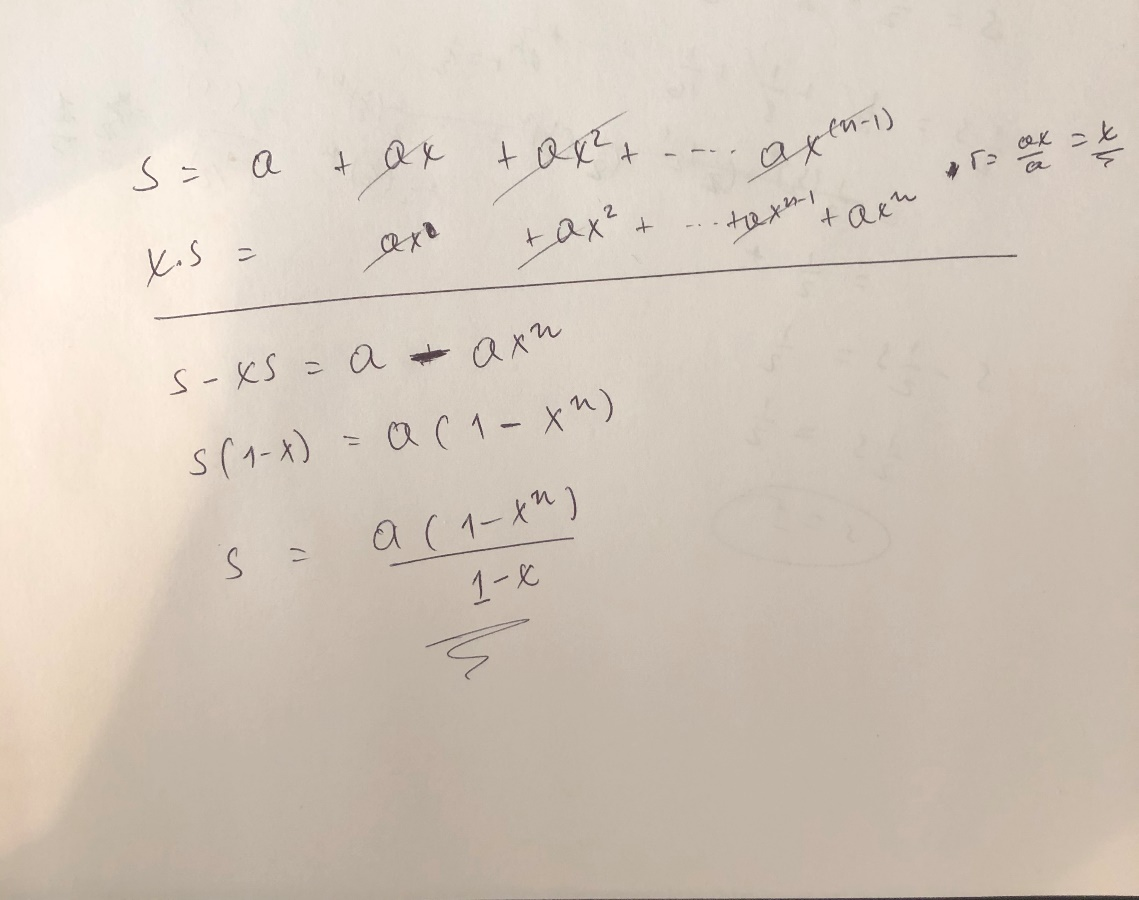 S = a + ax + ax² + ---- ax⁽ⁿ⁻¹⁾ , r = ax/a = x
x.S = ax + ax² + ... + axⁿ⁻¹ + axⁿ
S - xS = a - axⁿ
S(1-x) = a(1-xⁿ)
S = a(1-xⁿ)/1-x